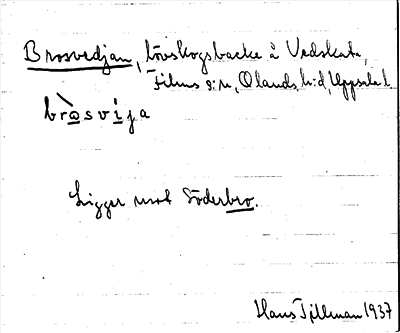 Brosvedjan, lövskogsbacke å Vedskata,
Films s:n, Olands h:d, Uppsala l.
bròsvija
Ligger mot Söderbro.
Hans Tillman 1937